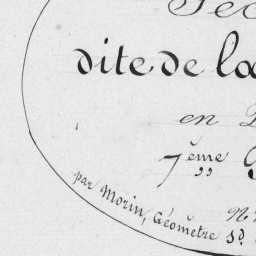 Sec
dite de la
en
7ème
par Morin, Géomètre